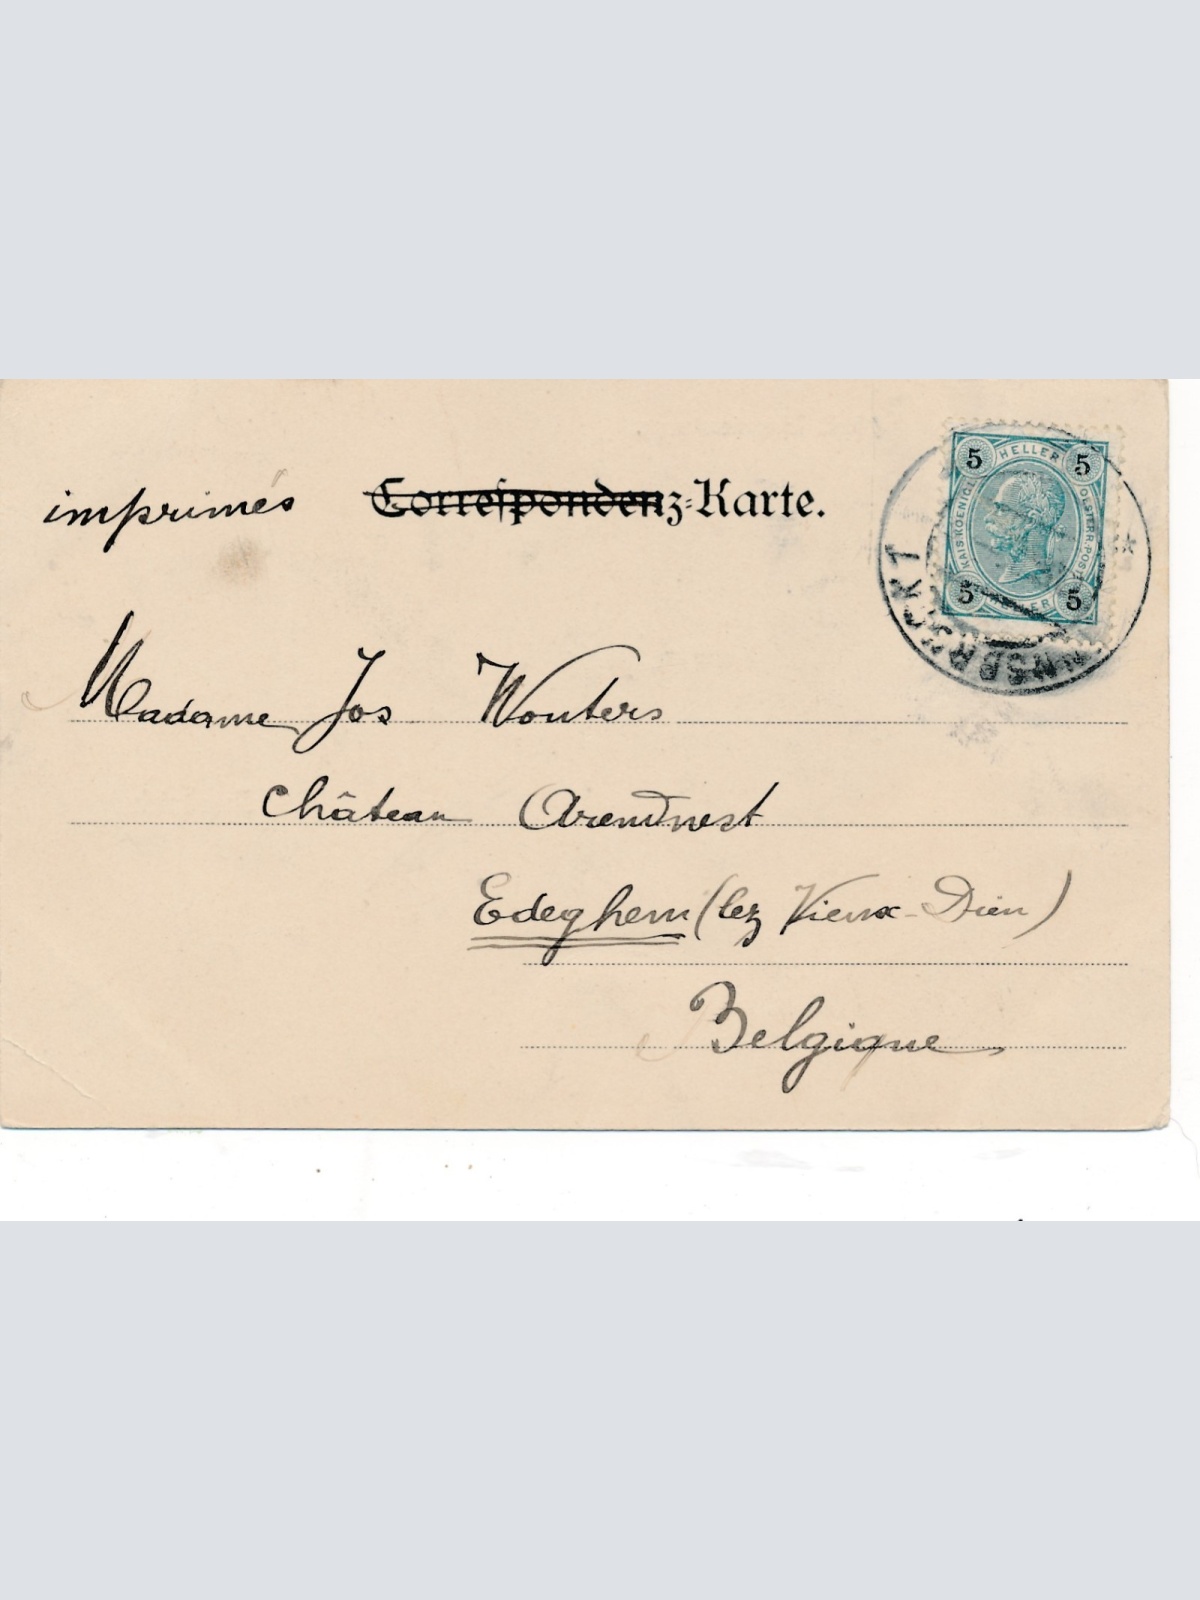 imprimés Correspondenz-Karte.
5 HELLER 5
KAIS. KOENIGL. OESTERR. POST
5 HELLER 5
INNSBRUCK 1
Madame Jos Wouters
Château Arendnest
Edeghem (lez Vieux-Dieu)
Belgique